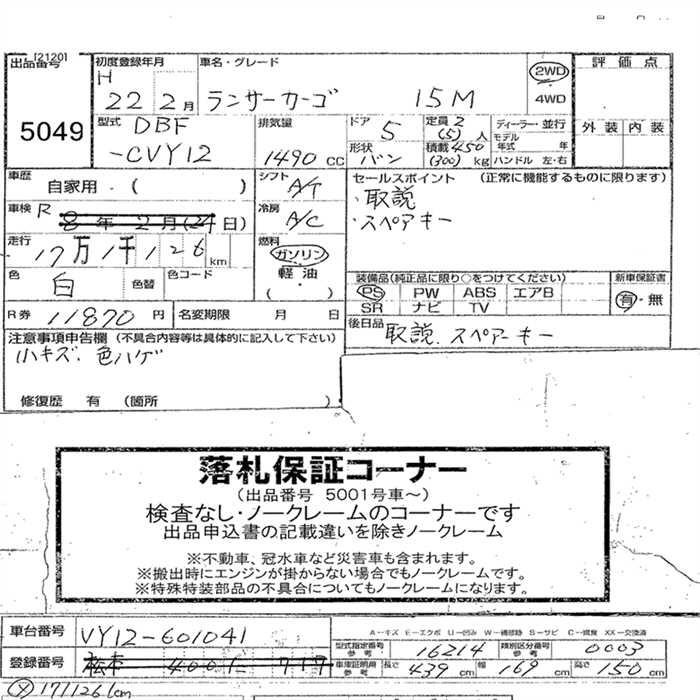 [2120]
出品番号 5049
初度登録年月 H 22 2月
車名・グレード ランサーカーゴ 15M
2WD
4WD
評価点
外装 内装
型式 DBF
-CVY12
排気量 1490 CC
ドア 5
形状 バン
定員 2 (5) 人
積載 450 (300) kg
ディーラー・並行
モデル年式 年
ハンドル 左・右
車歴 自家用・( )
シフト A/T
セールスポイント (正常に機能するものに限ります)
・取説
・スペアキー
車検 R 8年 2月(24日)
冷房 A/C
走行 17万1千126km
燃料 ガソリン
軽油・
( )
色 白 色替 色コード
装備品(純正品に限り○をつけてください)
PS PW ABS エアB
SR ナビ TV
新車保証書
有・無
R券 11870円 名変期限 月 日
後日品 取説、スペアーキー
注意事項申告欄 (不具合内容等は具体的に記入して下さい)
小キズ、色ハゲ
修復歴 有 (箇所 )
落札保証コーナー
(出品番号 5001号車~)
検査なし・ノークレームのコーナーです
出品申込書の記載違いを除きノークレーム
※不動車、冠水車など災害車も含まれます。
※搬出時にエンジンが掛からない場合でもノークレームです。
※特殊特装部品の不具合についてもノークレームになります。
車台番号 VY12-601041
A-キズ E-エクボ U-凹み W-補修跡 S-サビ C-腐食 XX-交換済
型式指定番号 参考 16214 類別区分番号 参考 0003
登録番号 松本 400 717
車庫証明用 参考 長さ 439 cm 幅 169 cm 高さ 150 cm
171126km